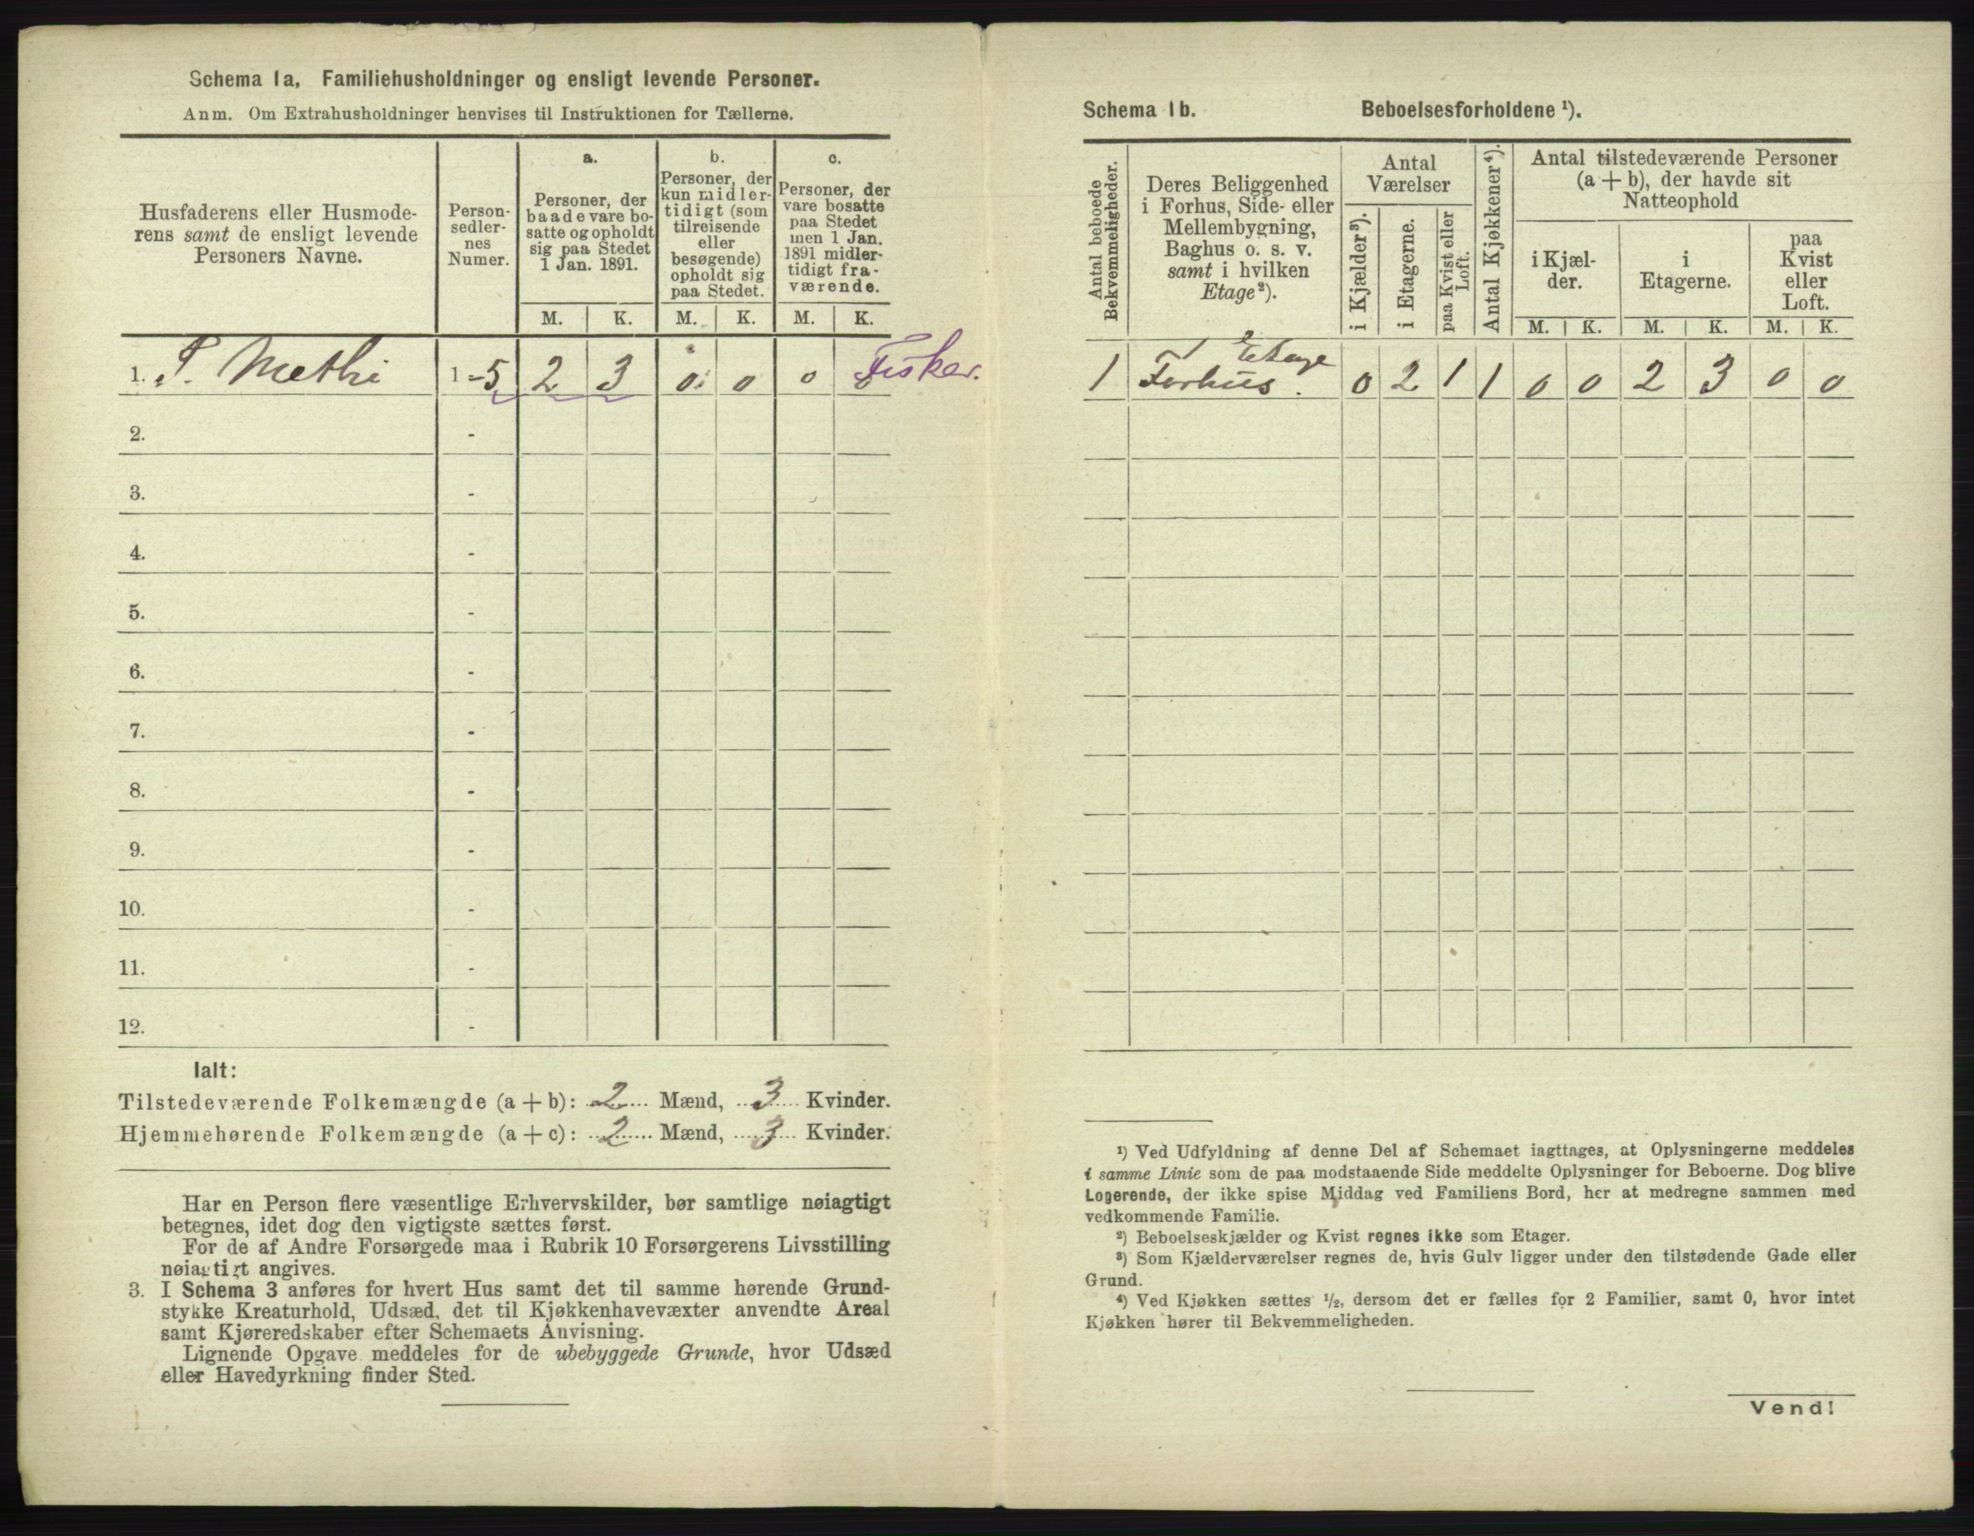 Schema 1a, Familiehusholdninger og ensligt levende Personer.
Anm. Om Extrahusholdninger henvises til Instruktionen for Tællerne.
Husfaderens eller Husmode-
rens samt de ensligt levende
Personers Navne.
Person-
sedler-
nes
Numer.
a.
Personer, der
baade vare bo-
satte og opholdt
sig paa Stedet
1 Jan. 1891.
b.
Personer, der
kun midler-
tidigt (som
tilreisende
eller
besøgende)
opholdt sig
paa Stedet.
c.
Personer, der
vare bosatte
paa Stedet
men 1 Jan.
1891 midler-
tidigt fra-
værende.
M. K. M. K. M. K.
1. P. Methi 1-5 2 3 0 0 0 0 Fisker.
2. -
3. -
4. -
5. -
6. -
7. -
8. -
9. -
10. -
11. -
12. -
Ialt:
Tilstedeværende Folkemængde (a + b): 2 Mænd, 3 Kvinder.
Hjemmehørende Folkemængde (a + c): 2 Mænd, 3 Kvinder.
Har en Person flere væsentlige Erhvervskilder, bør samtlige nøiagtigt
betegnes, idet dog den vigtigste sættes først.
For de af Andre Forsørgede maa i Rubrik 10 Forsørgerens Livsstilling
nøiagtigt angives.
3. I Schema 3 anføres for hvert Hus samt det til samme hørende Grund-
stykke Kreaturhold, Udsæd, det til Kjøkkenhavevæxter anvendte Areal
samt Kjøreredskaber efter Schemaets Anvisning.
Lignende Opgave meddeles for de ubebyggede Grunde, hvor Udsæd
eller Havedyrkning finder Sted.
Schema 1b. Beboelsesforholdene ¹).
Antal beboede
Bekvemmeligheder.
Deres Beliggenhed
i Forhus, Side- eller
Mellembygning,
Baghus o. s. v.
samt i hvilken
Etage²).
Antal
Værelser
i Kjælder³).
i Etagerne.
paa Kvist eller
Loft.
Antal Kjøkkener⁴).
Antal tilstedeværende Personer
(a + b), der havde sit
Natteophold
i Kjæl-
der.
i
Etagerne.
paa
Kvist
eller
Loft.
M. K. M. K. M. K.
2 Etage
1 Forhus. 0 2 1 1 0 0 2 3 0 0
¹) Ved Udfyldning af denne Del af Schemaet iagttages, at Oplysningerne meddeles
i samme Linie som de paa modstaaende Side meddelte Oplysninger for Beboerne. Dog blive
Logerende, der ikke spise Middag ved Familiens Bord, her at medregne sammen med
vedkommende Familie.
²) Beboelseskjælder og Kvist regnes ikke som Etager.
³) Som Kjælderværelser regnes de, hvis Gulv ligger under den tilstødende Gade eller
Grund.
⁴) Ved Kjøkken sættes ½, dersom det er fælles for 2 Familier, samt 0, hvor intet
Kjøkken hører til Bekvemmeligheden.
Vend!